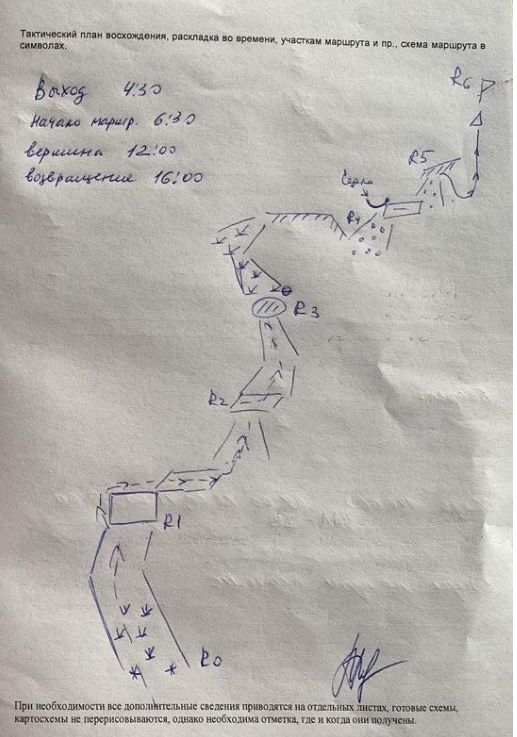 Тактический план восхождения, раскладка во времени, участкам маршрута и пр., схема маршрута в
символах.
Выход 4:30
Начало маршр. 6:30
вершина 12:00
возвращение 16:00
R6
R5
Седло
R4
R3
R2
R1
R0
При необходимости все дополнительные сведения приводятся на отдельных листах, готовые схемы,
картосхемы не перерисовываются, однако необходима отметка, где и когда они получены.